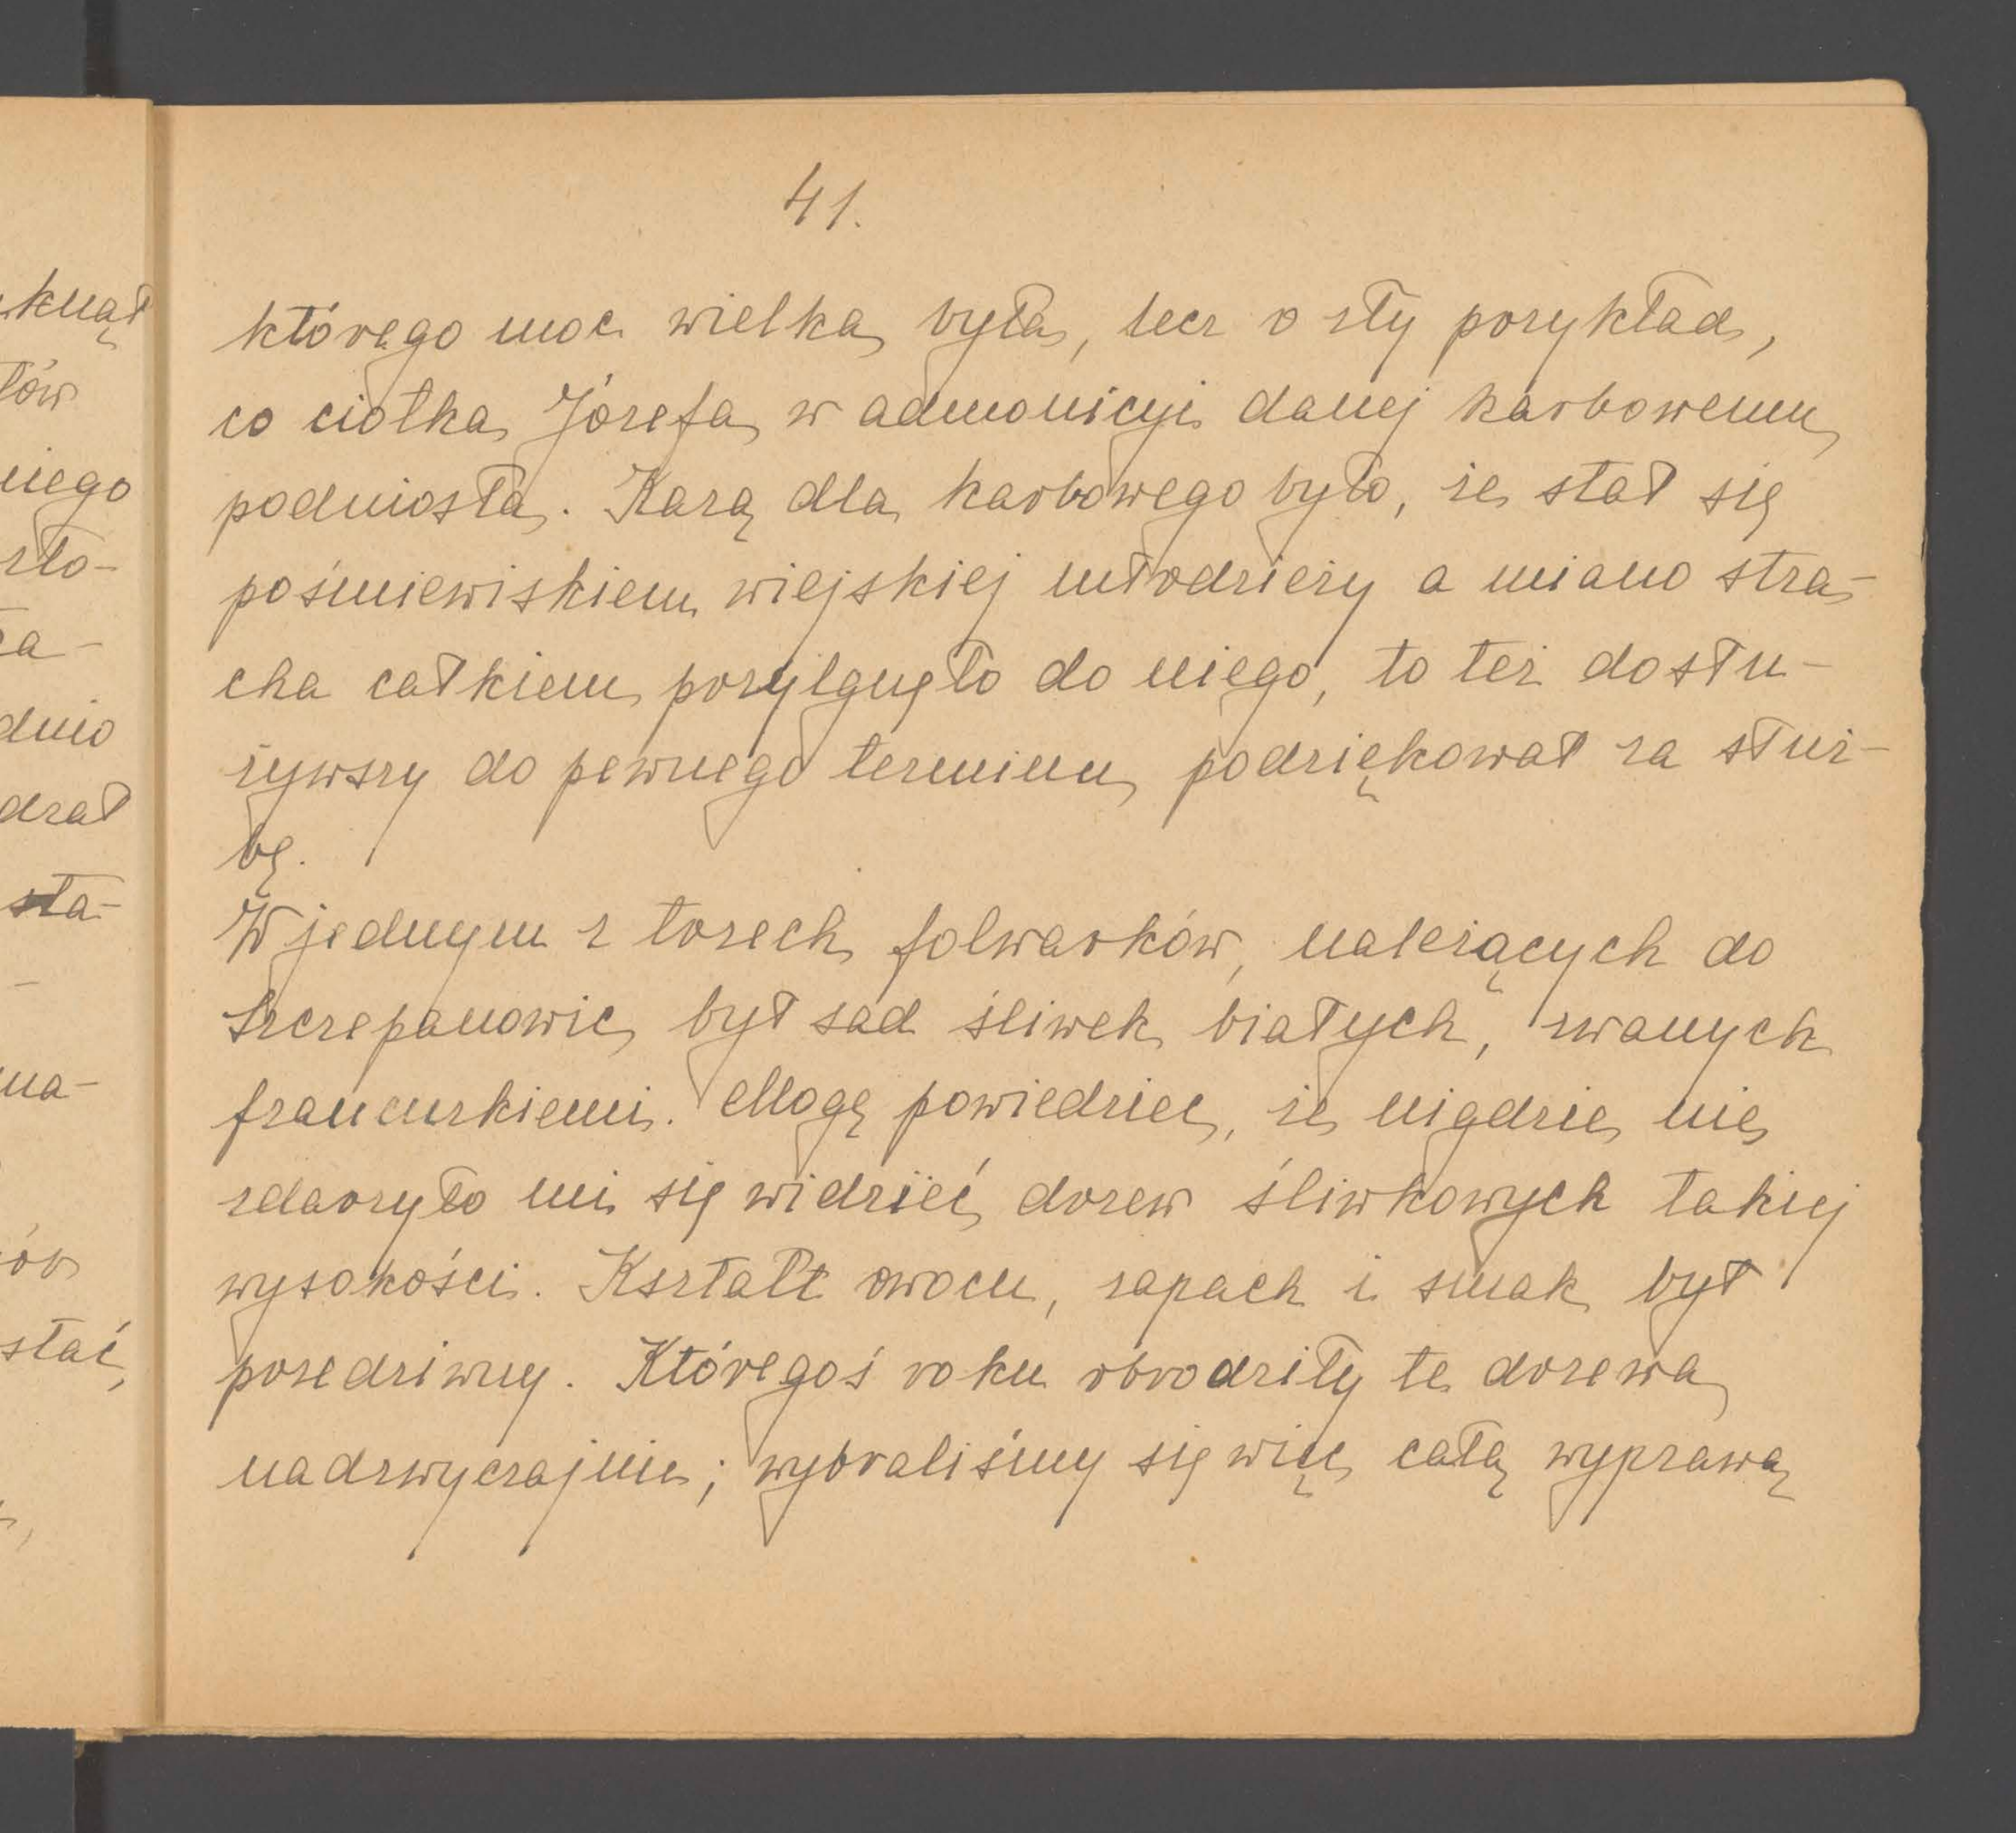 41.
którego moc wielka była, lecz o zły przykład,
co ciotka Józefa w admonicyi danej karbowemu
podniosła. Karą dla karbowego było, że stał się
pośmiewiskiem wiejskiej młodzieży a miano stra-
cha całkiem przylgnęło do niego, to też dosłu-
żywszy do pewnego terminu podziękował za służ-
bę.
W jednym z trzech folwarków, należących do
Szczepanowic był sad śliwek białych, zwanych
francuzkiemi. Mogę powiedziec, że nigdzie nie
zdarzyło mi się widzieć drzew śliwkowych takiej
wysokości. Kształt owocu, zapach i smak był
przedziwny. Któregoś roku obrodziły te drzewa
nadzwyczajnie; wybraliśmy się więc całą wyprawą
knął
tów
niego
zło-
dnio
drał
sta-
na-
stać,